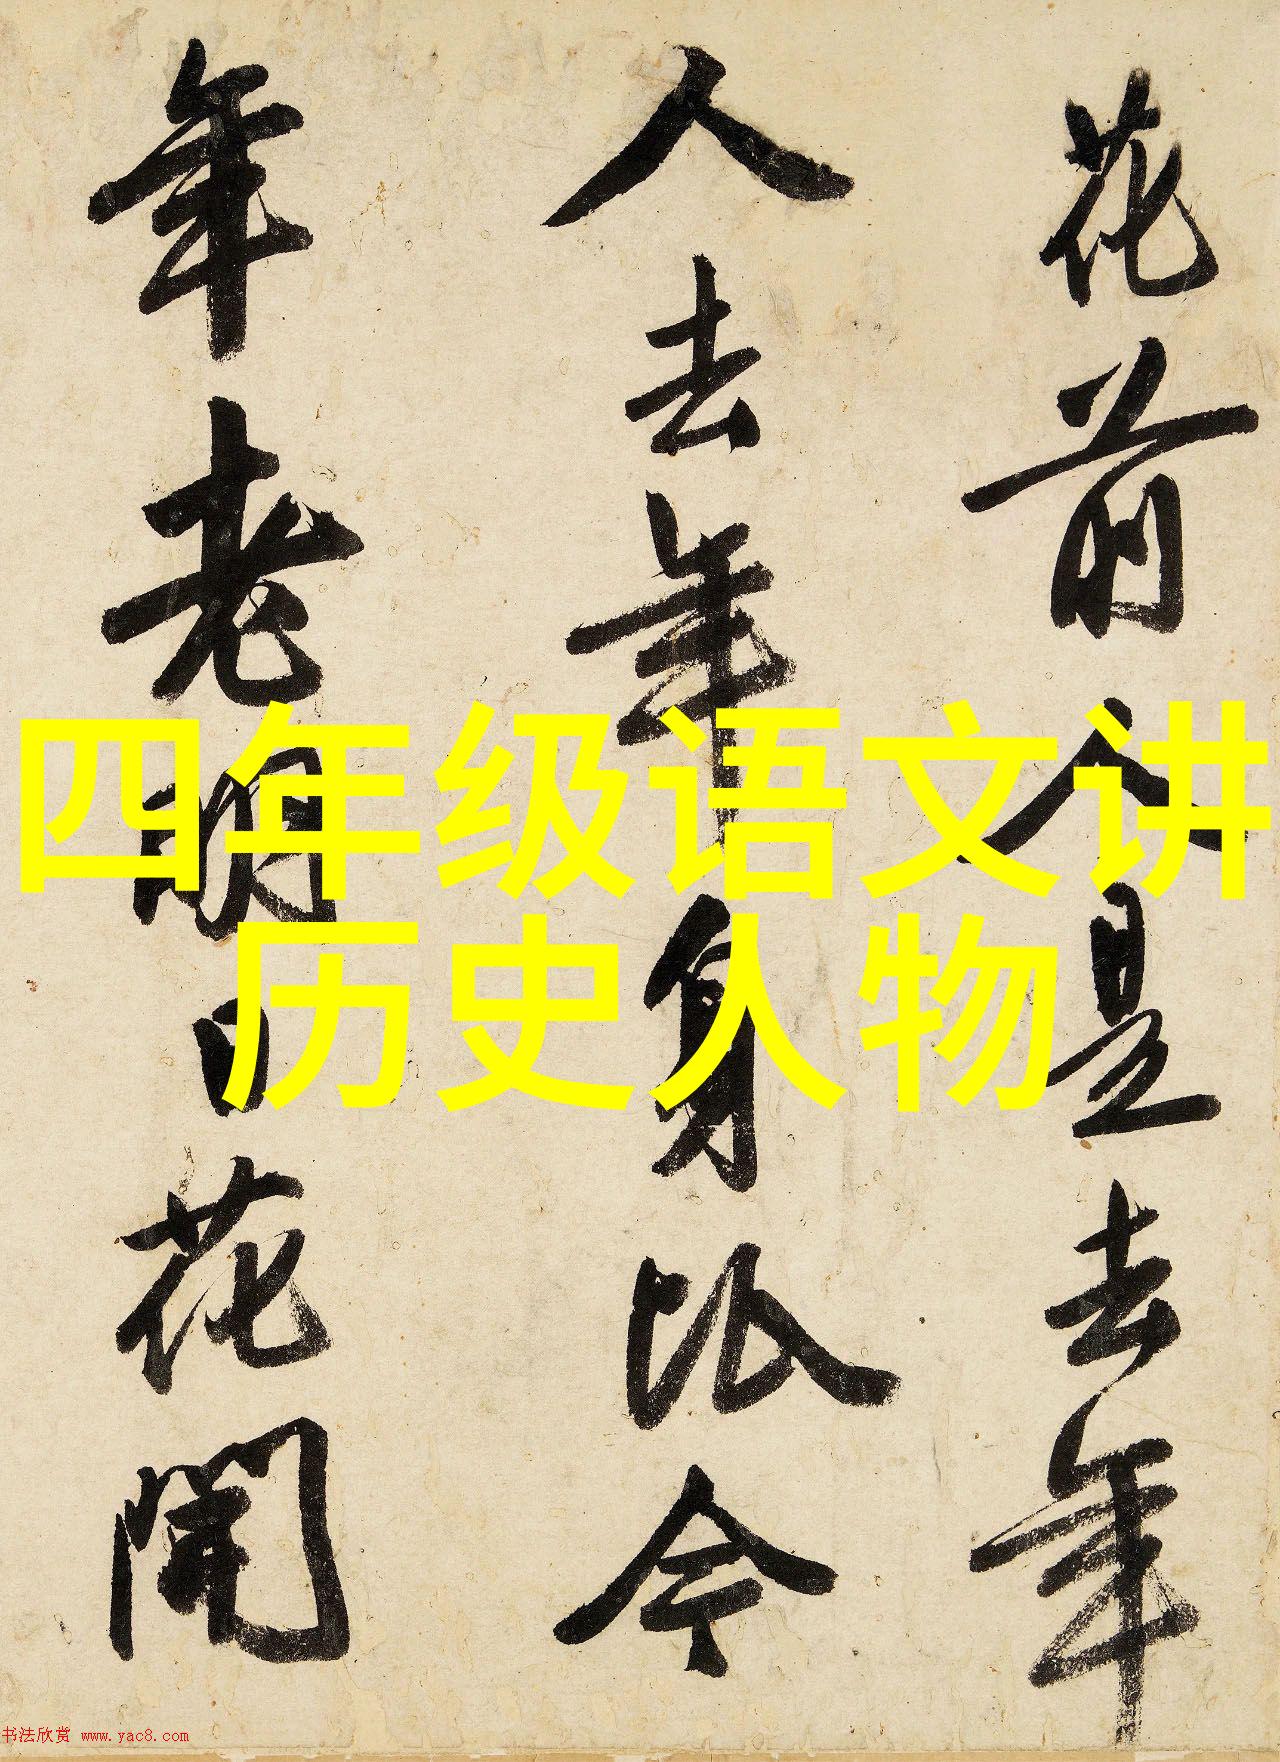 花前人是去年
人去年身比今
年老明日花開
四年级语文讲
历史人物
书法欣赏 www.yac8.com